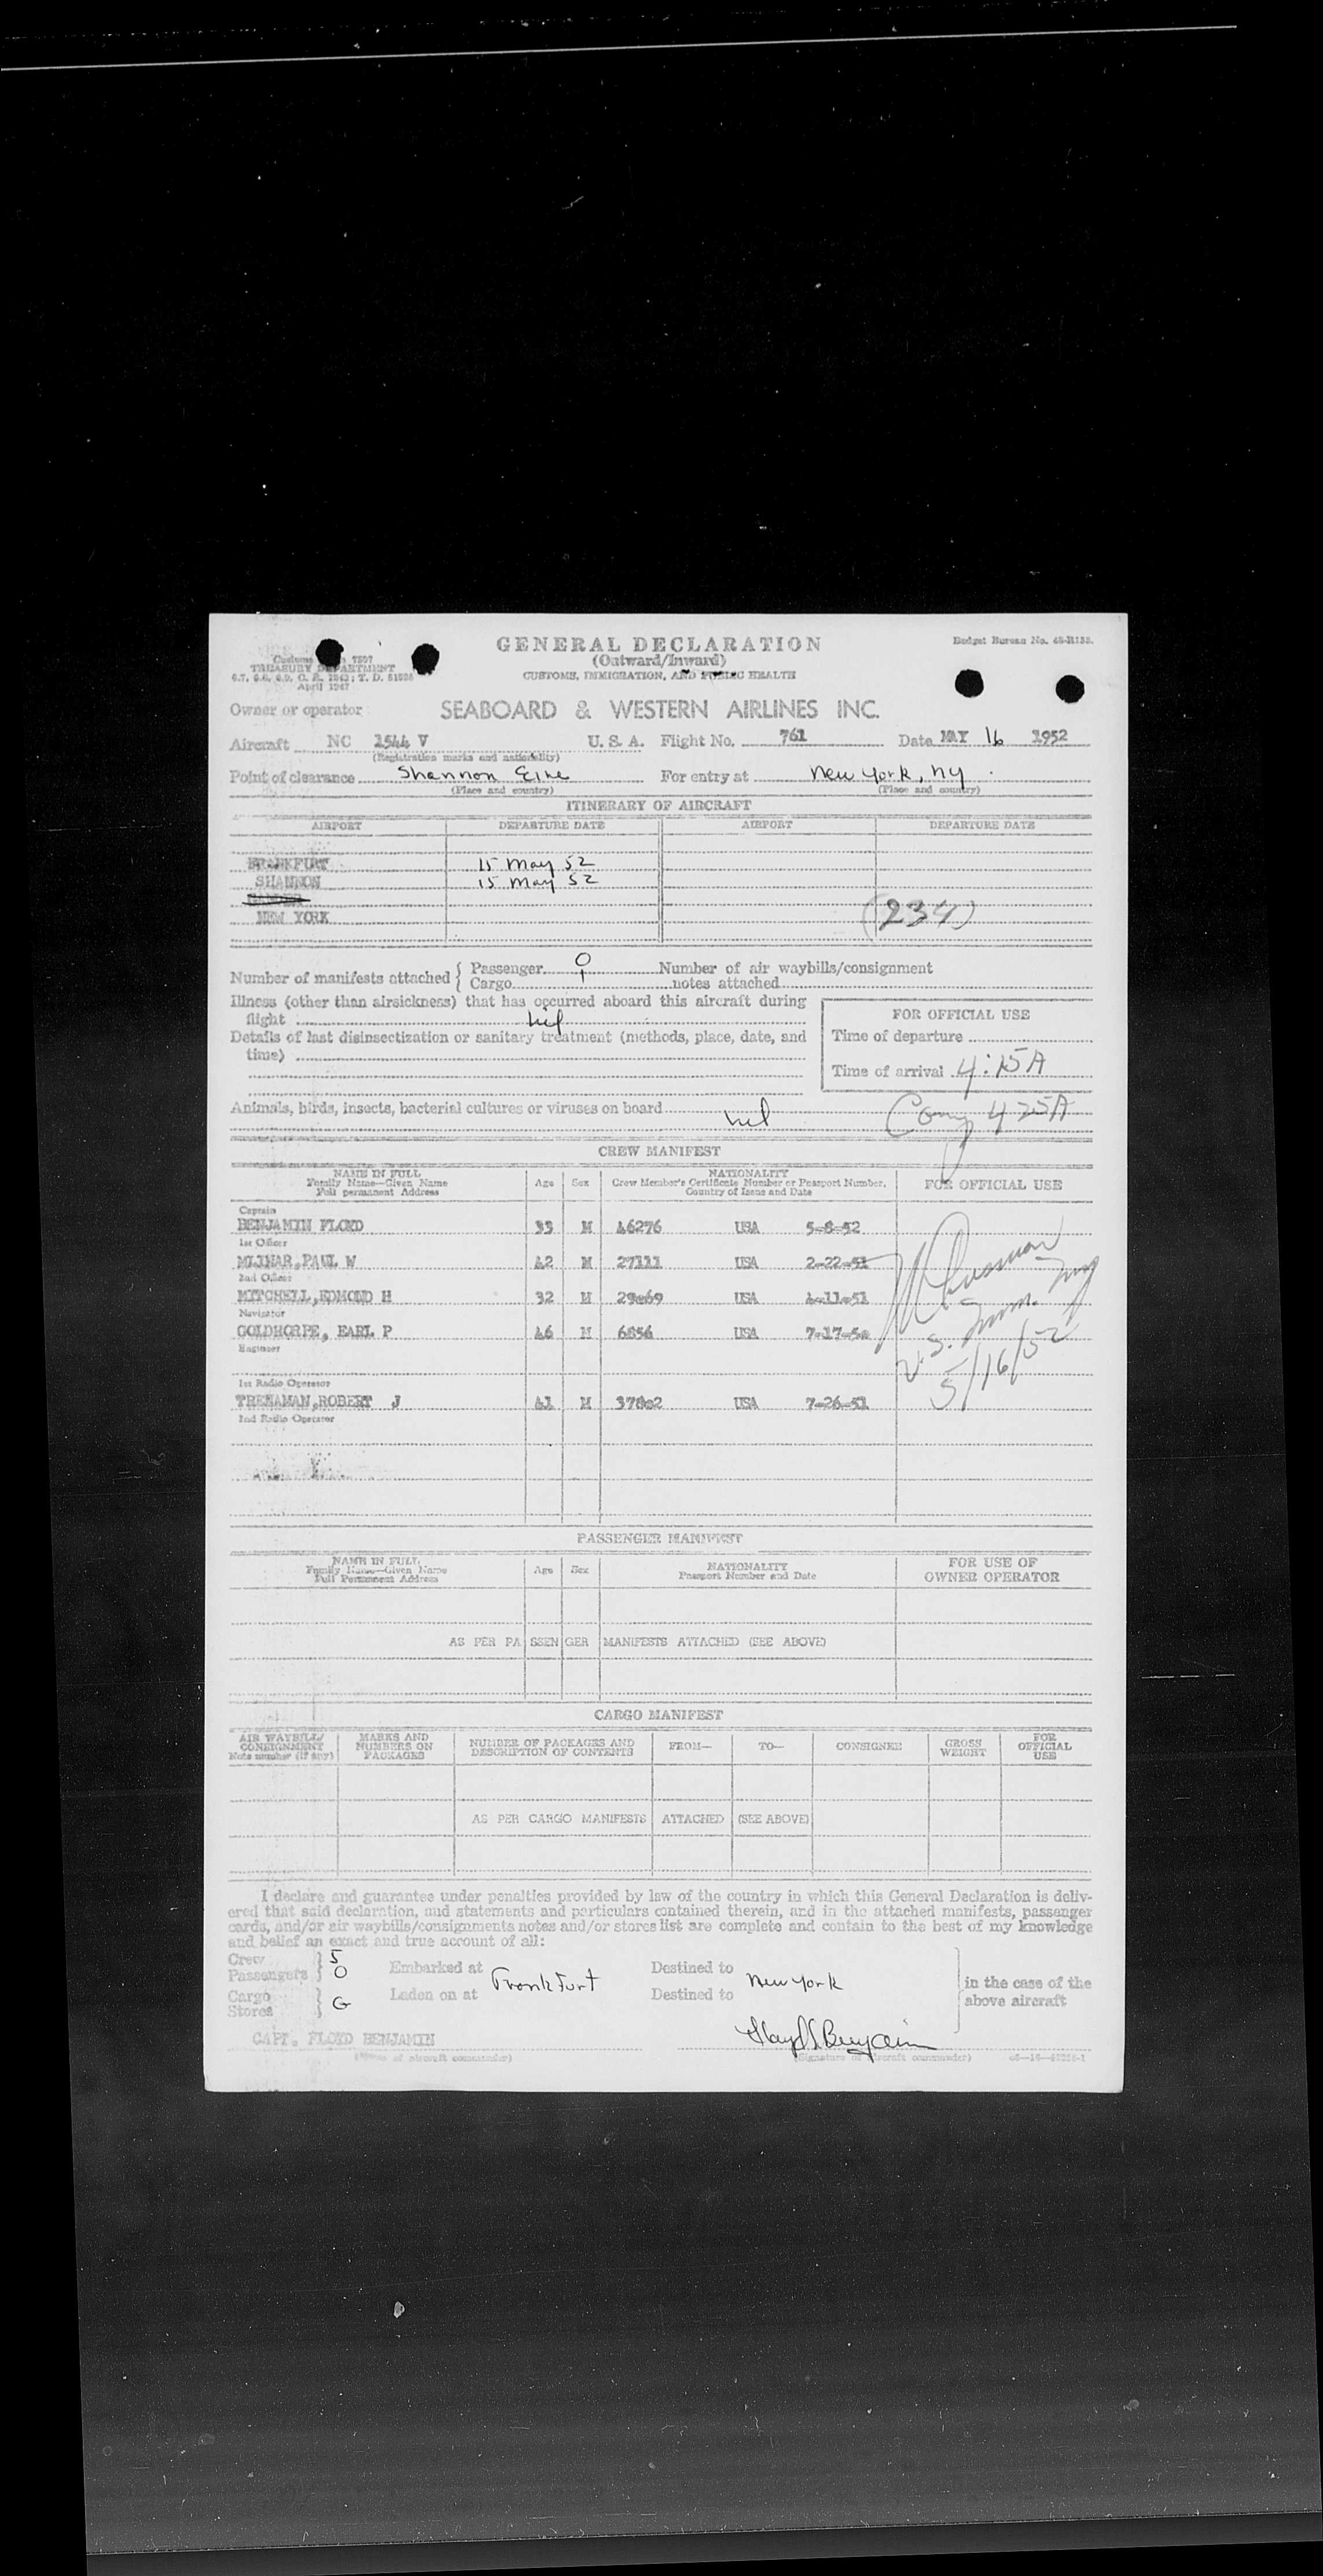 GENERAL DECLARATION
(Outward/Inward)
CUSTOMS, IMMIGRATION, AND PUBLIC HEALTH
Budget Bureau No.
Customs 7507
TREASURY DEPARTMENT
April 1947
Owner or operator SEABOARD & WESTERN AIRLINES INC.
Aircraft NC 1544 V U. S. A. Flight No. 761 Date MAY 16 1952
(Registration marks and nationality)
Point of clearance Shannon Eire For entry at New York, NY.
(Place and country) (Place and country)
ITINERARY OF AIRCRAFT
AIRPORT DEPARTURE DATE AIRPORT DEPARTURE DATE
FRANKFURT 15 May 52
SHANNON 15 May 52
NEW YORK (234)
Number of manifests attached { Passenger 0 Number of air waybills/consignment
Cargo 1 notes attached
Illness (other than airsickness) that has occurred aboard this aircraft during
flight nil
FOR OFFICIAL USE
Details of last disinsectization or sanitary treatment (methods, place, date, and
time)
Time of departure
Time of arrival 4:15A
Animals, birds, insects, bacterial cultures or viruses on board nil 425A
CREW MANIFEST
NAME IN FULL
Family Name—Given Name
Full permanent Address
Age Sex
NATIONALITY
Crew Member's Certificate Number or Passport Number,
Country of Issue and Date
FOR OFFICIAL USE
Captain
BENJAMIN FLOYD 33 M 46276 USA 5-8-52
1st Officer
MLINAR,PAUL W 42 M 27111 USA 2-22-51
2nd Officer
MITCHELL,EDMOND H 32 M 29e69 USA 4-11-51
Navigator
GOLDHORPE, EARL P 46 M 6856 USA 7-17-5
Engineer
1st Radio Operator
TREHAMAN,ROBERT J 41 M USA 7-26-51
2nd Radio Operator
U.S. Imm. Insp
5/16/52
PASSENGER MANIFEST
NAME IN FULL
Family Name—Given Name
Full Permanent Address
Age Sex
NATIONALITY
Passport Number and Date
FOR USE OF
OWNER OPERATOR
AS PER PASSENGER MANIFESTS ATTACHED (SEE ABOVE)
CARGO MANIFEST
AIR WAYBILL/
CONSIGNMENT
Note number (if any)
MARKS AND
NUMBERS ON
PACKAGES
NUMBER OF PACKAGES AND
DESCRIPTION OF CONTENTS
FROM— TO— CONSIGNEE
GROSS
WEIGHT
FOR
OFFICIAL
USE
AS PER CARGO MANIFESTS ATTACHED (SEE ABOVE)
I declare and guarantee under penalties provided by law of the country in which this General Declaration is deliv-
ered that said declaration, and statements and particulars contained therein, and in the attached manifests, passenger
cards, and/or air waybills/consignments notes and/or stores list are complete and contain to the best of my knowledge
and belief an exact and true account of all:
Crew 5
Passengers 0
Embarked at Frankfurt Destined to New York
Cargo
Stores G
Laden on at Destined to
in the case of the
above aircraft
CAPT. FLOYD BENJAMIN Floyd S Benjamin
(Name of aircraft commander) (Signature of aircraft commander)